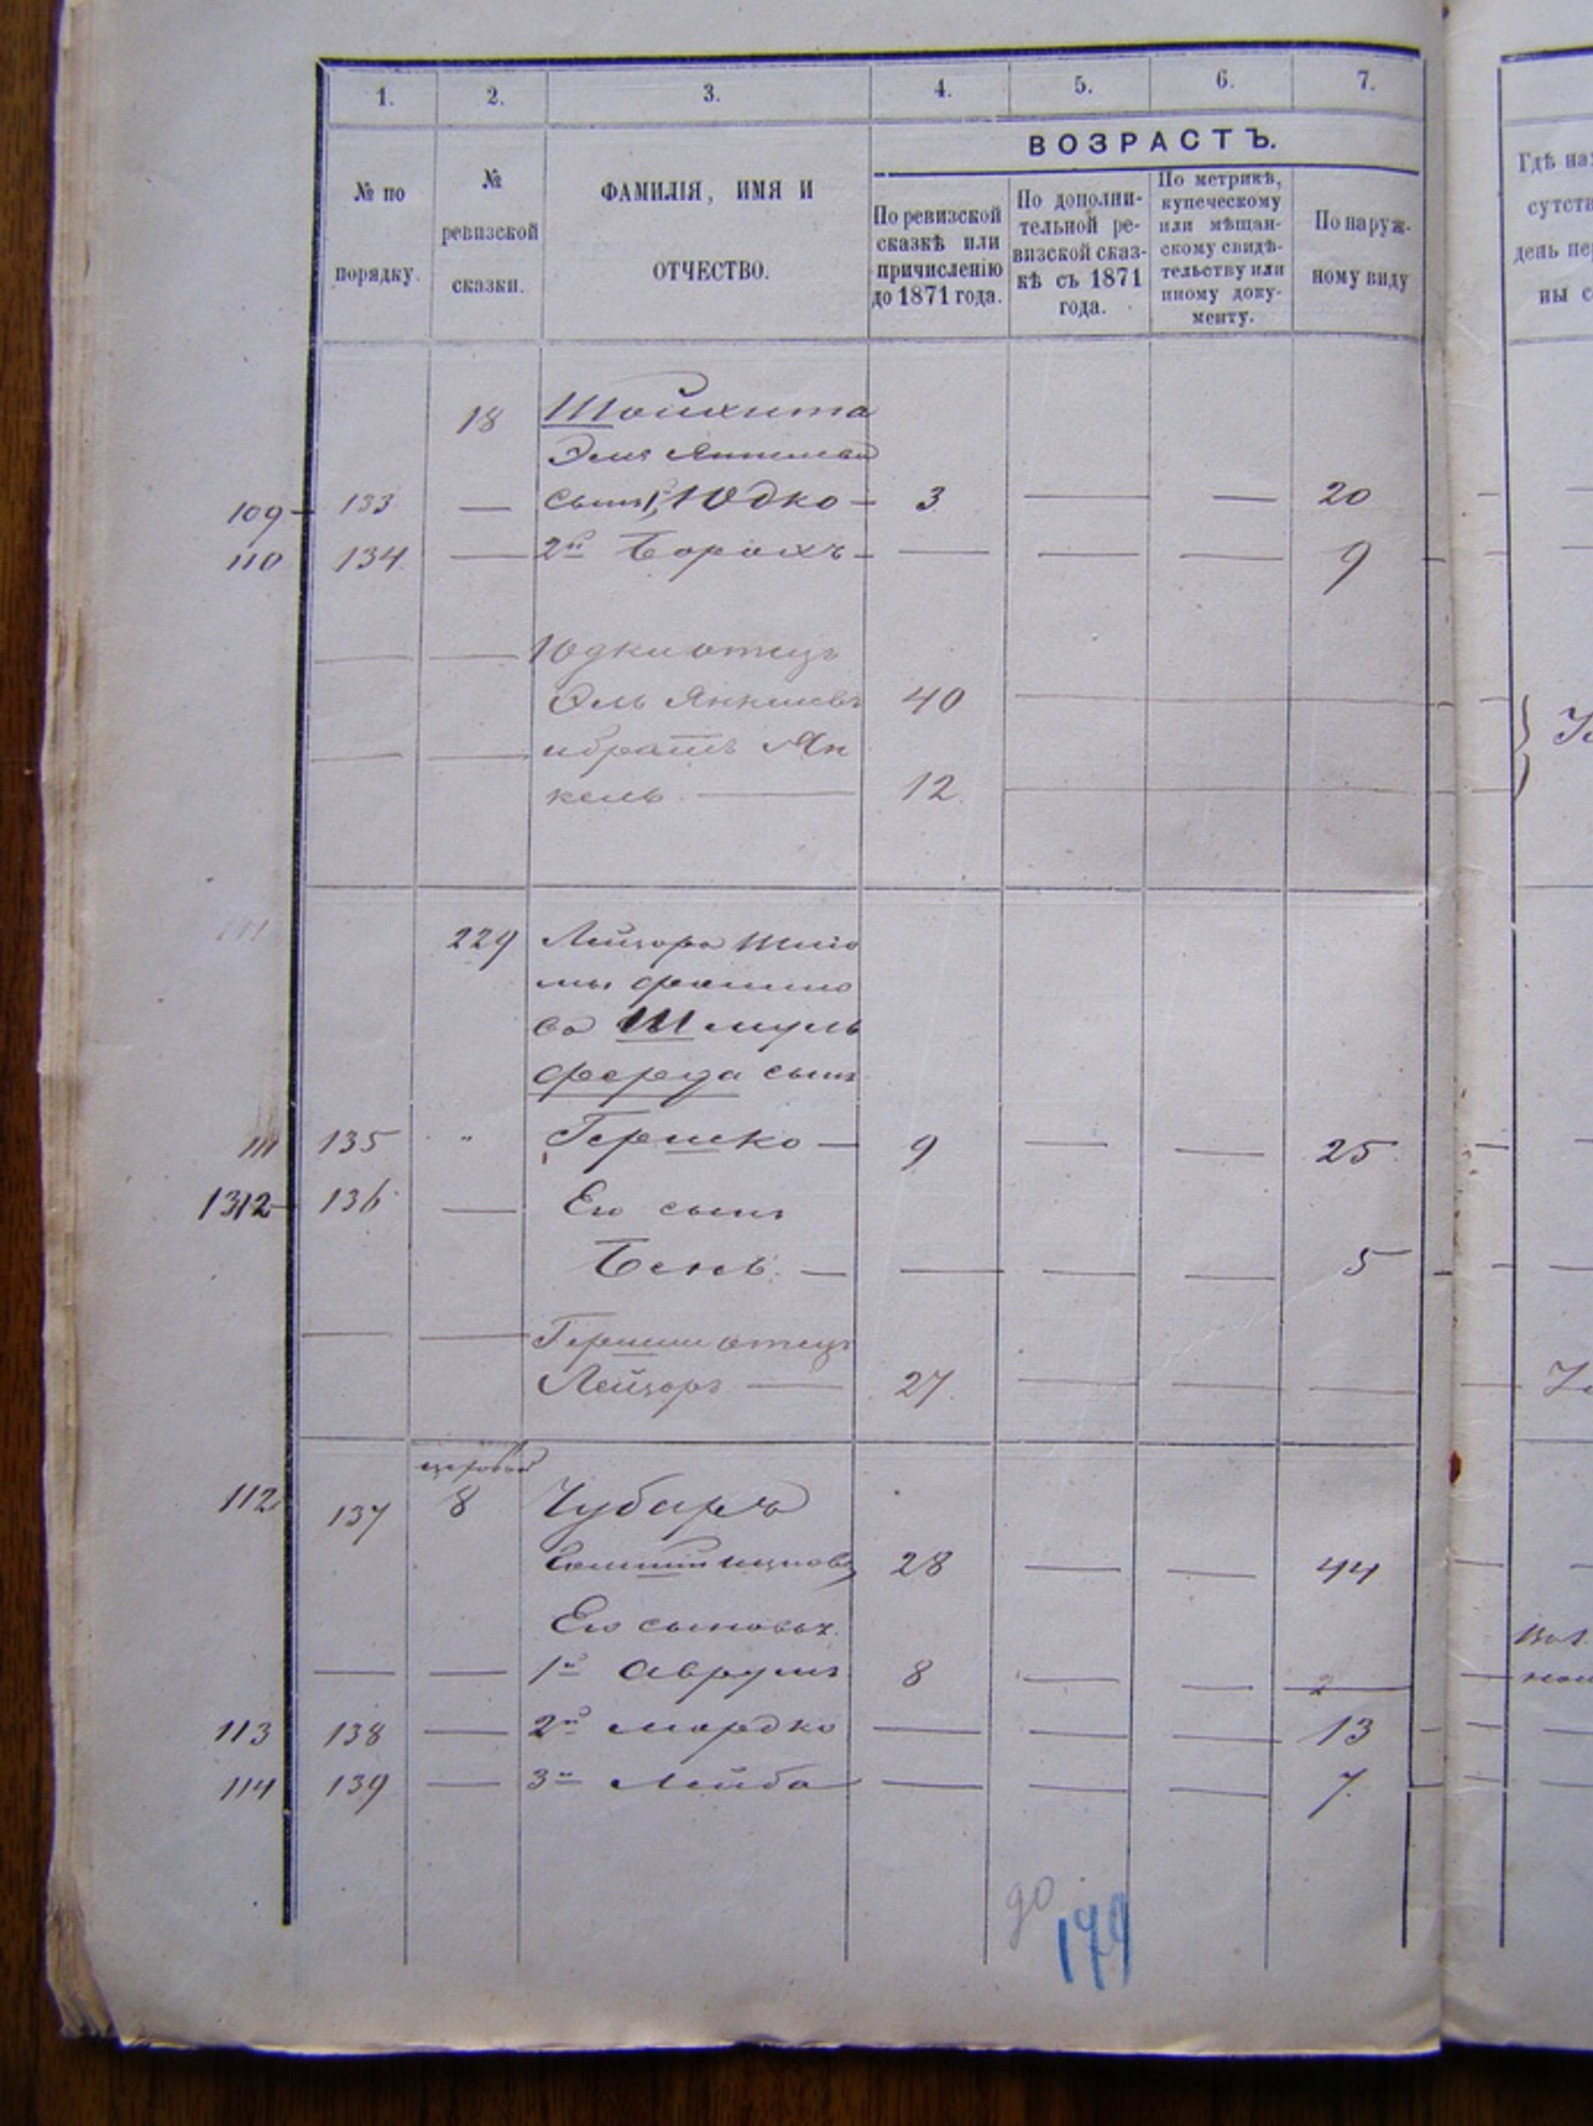 1. 2. 3. 4. 5. 6. 7.
ВОЗРАСТЪ.
№ по порядку.
№ ревизской сказки.
ФАМИЛІЯ, ИМЯ И
ОТЧЕСТВО.
По ревизской
сказкѣ или
причисленію
до 1871 года.
По дополни-
тельной ре-
визской сказ-
кѣ съ 1871
года.
По метрикѣ,
купеческому
или мѣщан-
скому свидѣ-
тельству или
иному доку-
менту.
По наруж-
ному виду
18 Шойхита
Эля
109 133 — сынъ 1й Юдко — 3 — — 20
110 134 — 2й Борохъ — — — — 9
— — Юдки отецъ
Эль Янкелевъ 40
— — и братъ Ян
кель — 12
229 Лейзора Шлио
мы
са Шмуль
ферида сынъ
111 135 " Гершко — 9 — — 25
1312 136 — Его сынъ
Бень — — — — 5
— — Гершки отецъ
Лейзоръ — 27 — — —
112 137 8 Чубаръ
28 — — 44
Его сыновья
— — 1й Аврумъ 8 — — 2
113 138 — 2й Мордко — — — 13
114 139 — 3й Лейба — — — 7
до
179
Гдѣ на
сутст
день пе
ны с